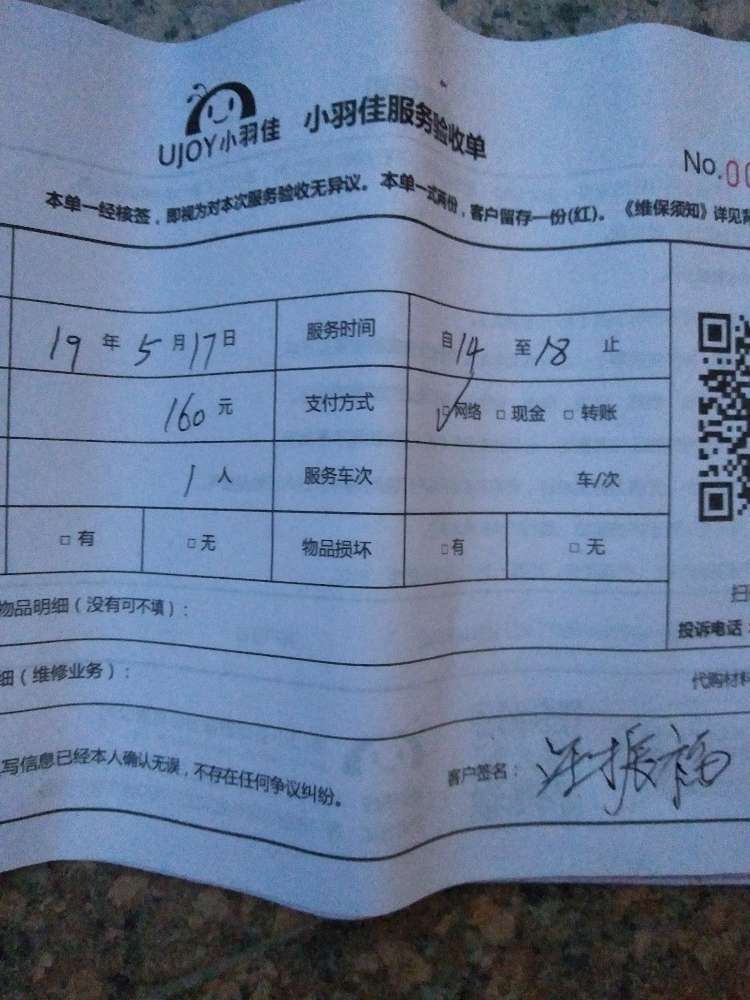 UJOY小羽佳 小羽佳服务验收单
No.00
本单一经核签，即视为对本次服务验收无异议。本单一式两份，客户留存一份(红)。《维保须知》详见背
19 年 5 月 17 日 服务时间 自 14 至 18 止
160 元 支付方式 ☑网络 □ 现金 □ 转账
1 人 服务车次 车/次
□ 有 □ 无 物品损坏 □有 □ 无
物品明细（没有可不填）：
投诉电话
细（维修业务）：
代购材料
写信息已经本人确认无误，不存在任何争议纠纷。
客户签名： 汪振福